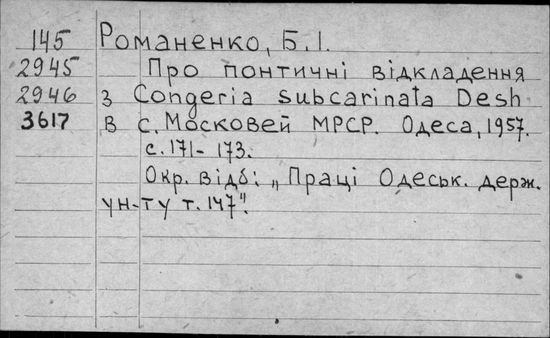 145 Романенко, Б. І.
2945 Про понтичні відкладення
2946 з Congeria subcarinata Desh
3617 в с. Московей МРСР. Одеса, 1957.
с. 171-173.
Окр. відб: „Праці Одеськ. держ.
ун-ту т. 147".